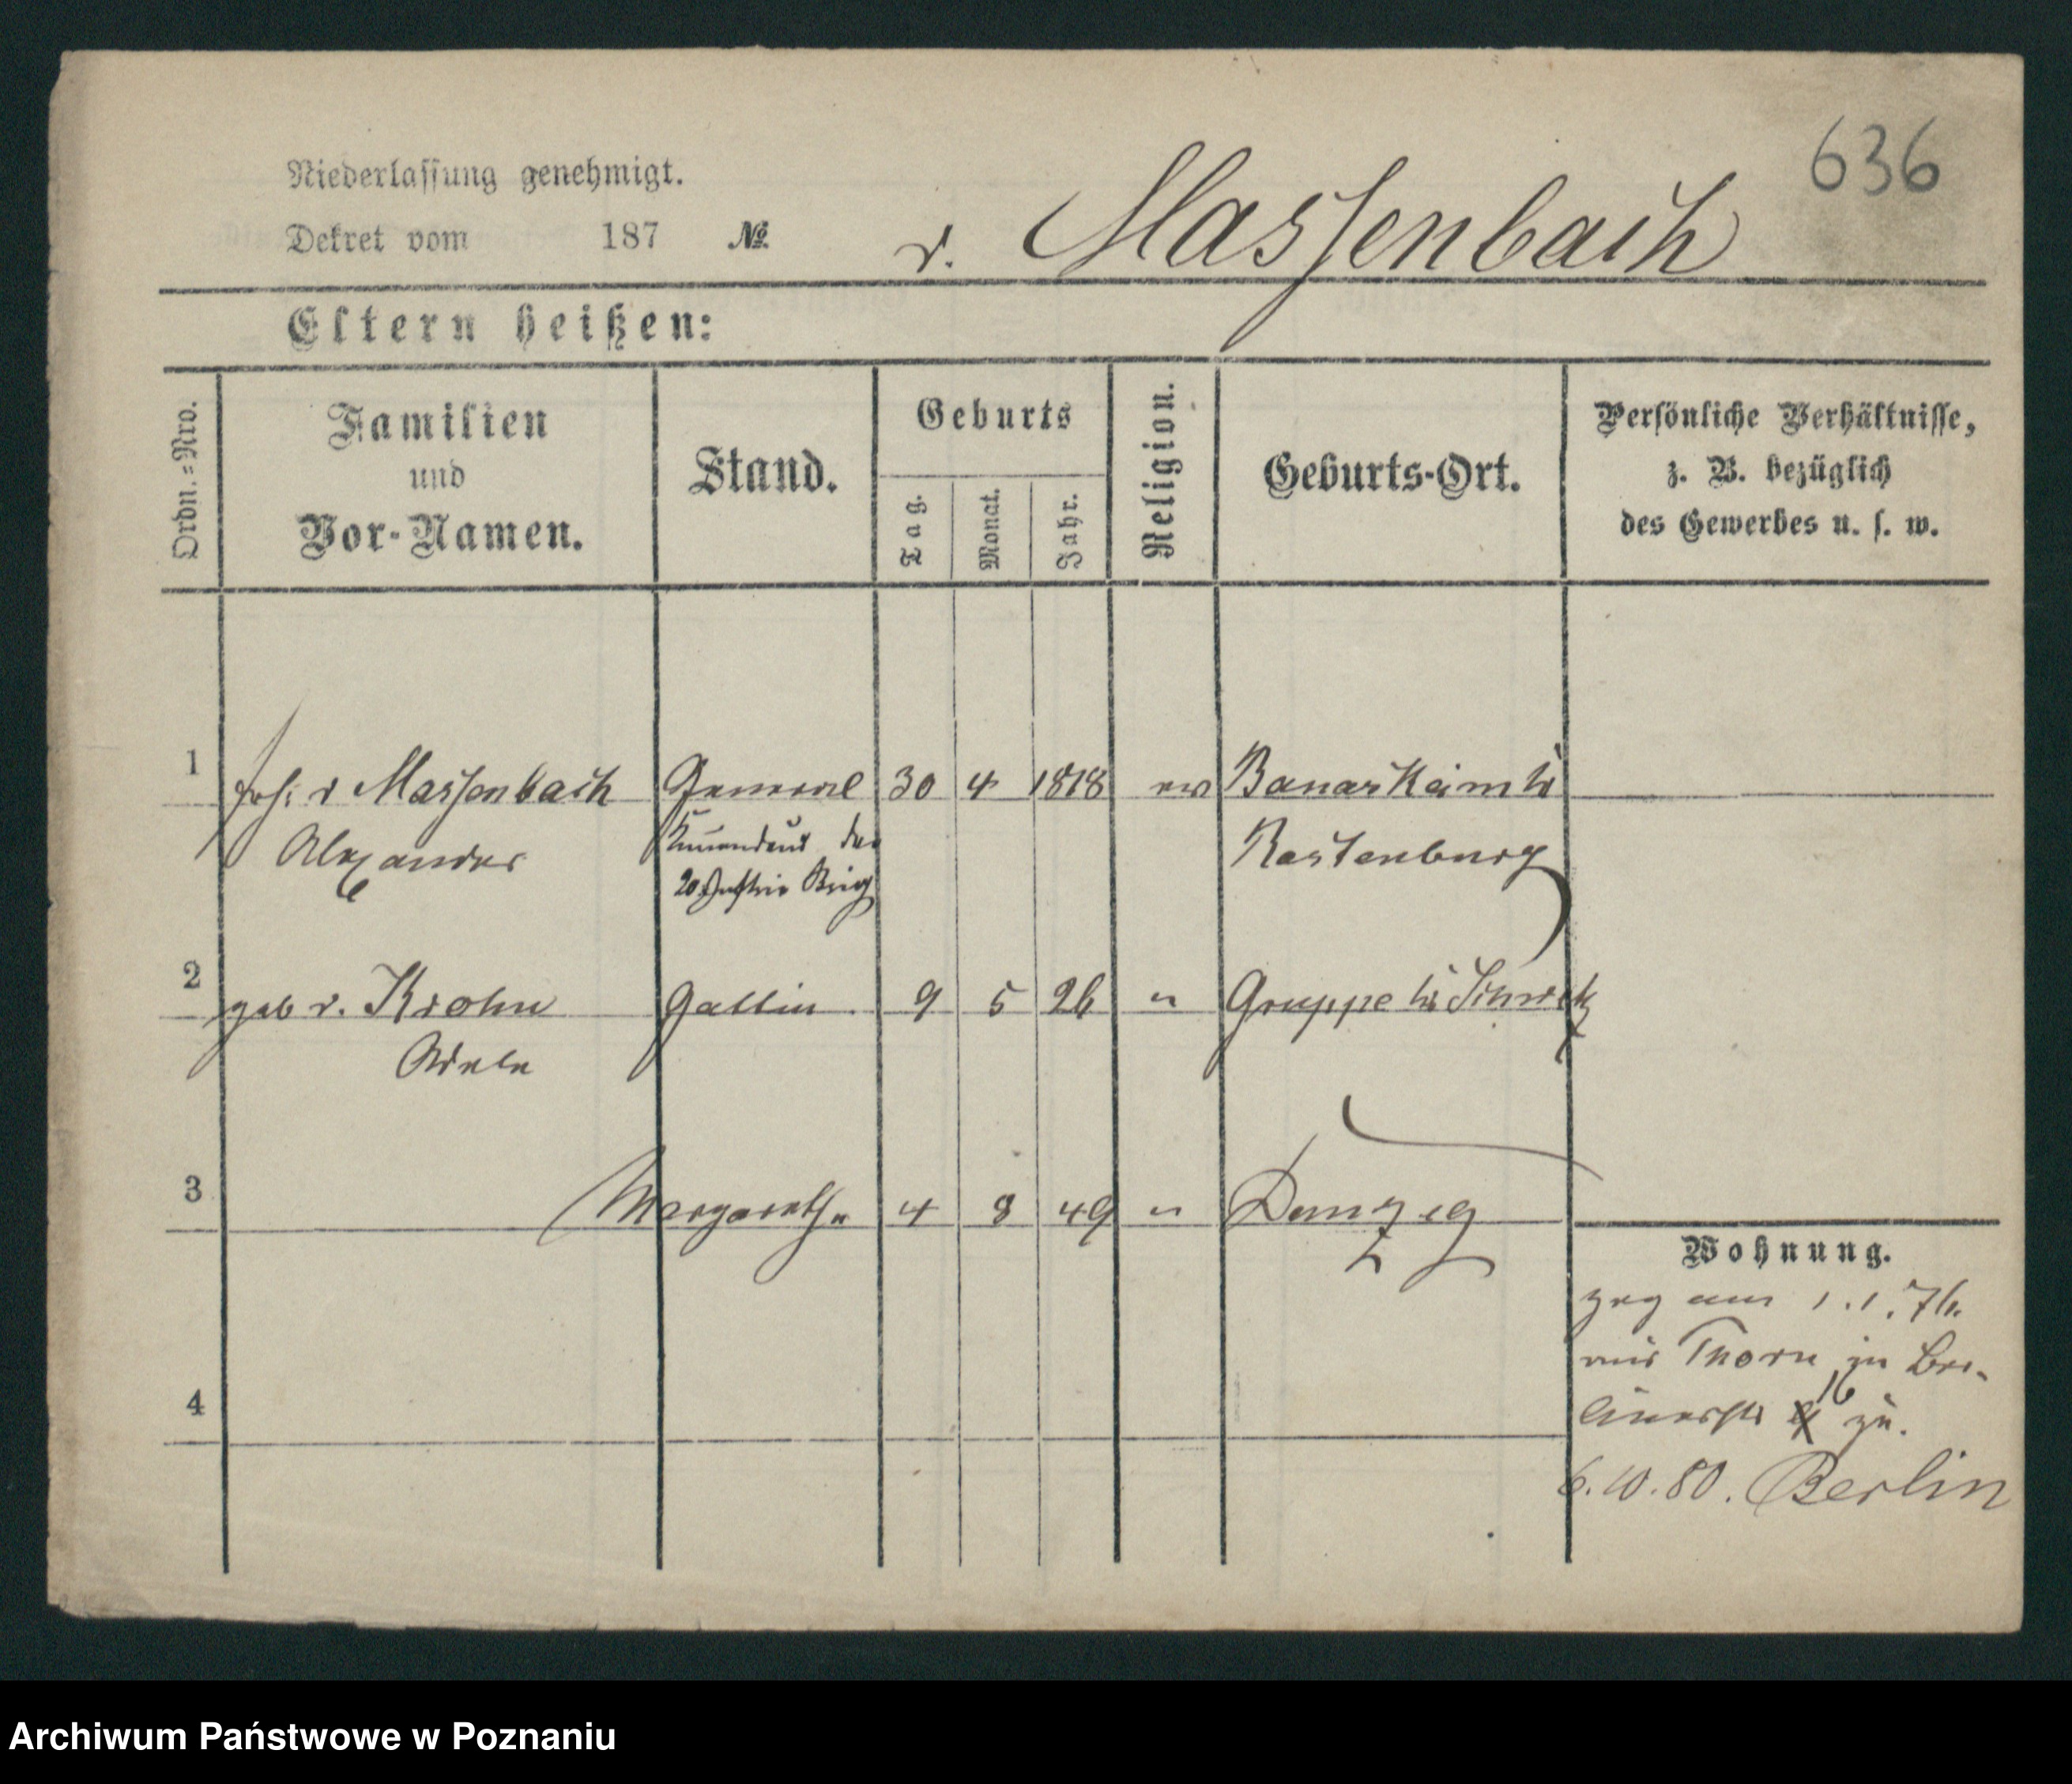 636
Niederlassung genehmigt.
Dekret vom 187 №
v. Massenbach
Eltern heißen:
Ordn.=Nro.
Familien
und
Vor-Namen.
Stand.
Geburts
Tag.
Monat.
Jahr.
Religion.
Geburts-Ort.
Persönliche Verhältnisse,
z. B. bezüglich
des Gewerbes u. s. w.
1 v Massenbach General 30 4 1818 ev
Alexander der
20 Brig Rastenburg
2 geb v. Krohn Gattin 9 5 26 " Gruppe bei Schwetz
Adele
3 Margarethe 4 8 49 " Danzig
Wohnung.
zog am 1.1.76.
aus Thorn in Ber-
linerstr 16 zu.
4
6.10.80. Berlin
Archiwum Państwowe w Poznaniu